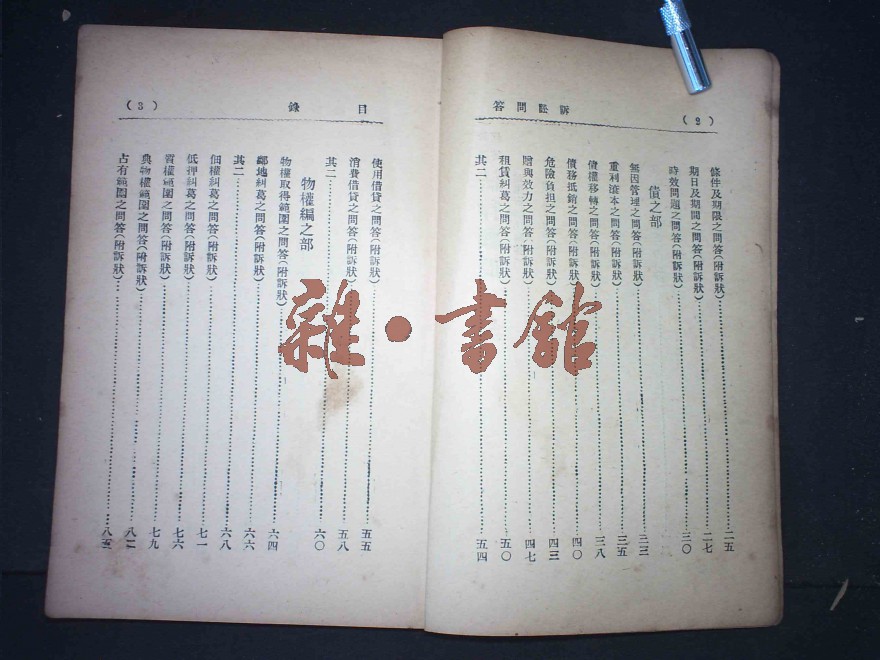 (2)
訴訟問答
條件及期限之問答(附訴狀)……二五
期日及期間之問答(附訴狀)……二七
時效問題之問答(附訴狀)……三〇
債之部
無因管理之問答(附訴狀)……三三
重利滾本之問答(附訴狀)……三五
債權移轉之問答(附訴狀)……三八
債務抵銷之問答(附訴狀)……四〇
危險負担之問答(附訴狀)……四三
贈與效力之問答(附訴狀)……四七
租賃糾葛之問答(附訴狀)……五〇
其二……五四
目錄
(3)
使用借貸之問答(附訴狀)……五五
消費借貸之問答(附訴狀)……五八
其二……六〇
物權編之部
物權取得範圍之問答(附訴狀)……六四
鄰地糾葛之問答(附訴狀)……六六
其二……六八
佃權糾葛之問答(附訴狀)……七一
低押糾葛之問答(附訴狀)……七六
質權範圍之問答(附訴狀)……七九
典物權範圍之問答(附訴狀)……八二
占有範圍之問答(附訴狀)……八五
雜·書館